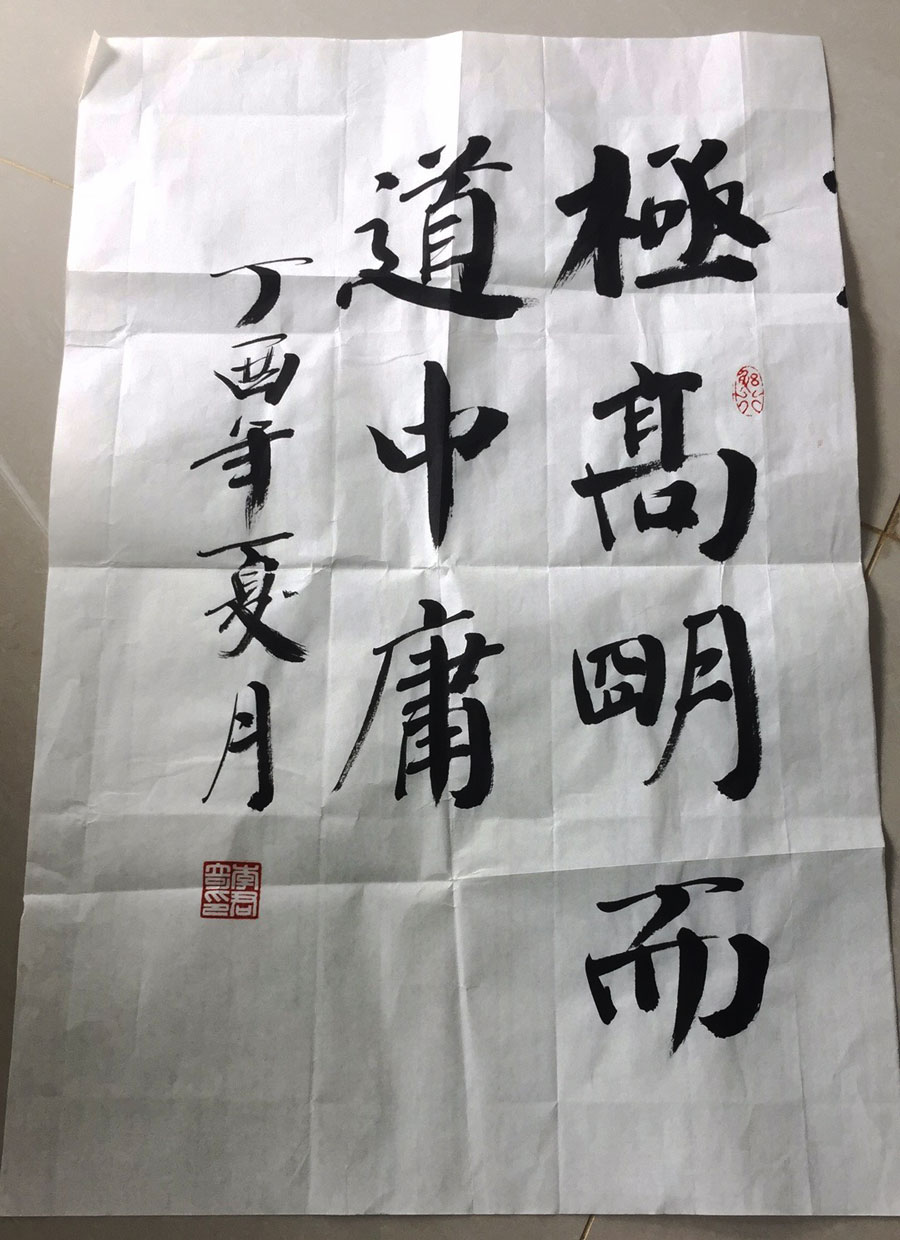 極高明而
道中庸
丁酉年夏月